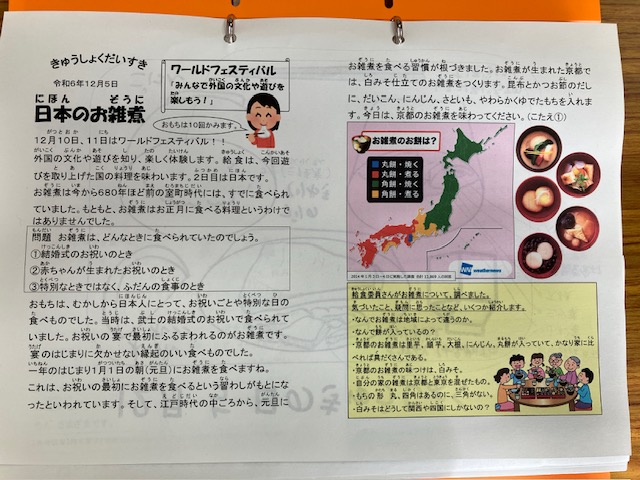 きゅうしょくだいすき
令和6年12月5日
日本のお雑煮
ワールドフェスティバル
「みんなで外国の文化や遊びを
楽しもう！」
おもちは10回かみます。
12月10日、11日はワールドフェスティバル！！
外国の文化や遊びを知り、楽しく体験します。給食は、今回遊
びを取り上げた国の料理を味わいます。2日目は日本です。
お雑煮は今から680年ほど前の室町時代には、すでに食べられ
ていました。もともと、お雑煮はお正月に食べる料理というわけで
はありませんでした。
問題 お雑煮は、どんなときに食べられていたのでしょう。
①結婚式のお祝いのとき
②赤ちゃんが生まれたお祝いのとき
③特別なときではなく、ふだんの食事のとき
おもちは、むかしから日本人にとって、お祝いごとや特別な日の
食べものでした。当時は、武士の結婚式のお祝いで食べられて
いました。お祝いの宴で最初にふるまわれるのがお雑煮です。
宴のはじまりに欠かせない縁起のいい食べものでした。
一年のはじまり1月1日の朝(元旦)にお雑煮を食べますね。
これは、お祝いの最初にお雑煮を食べるという習わしがもとにな
ったといわれています。そして、江戸時代の中ごろから、元旦に
お雑煮を食べる習慣が根づきました。お雑煮が生まれた京都で
は、白みそ仕立てのお雑煮をつくります。昆布とかつお節のだし
に、だいこん、にんじん、さといも、やわらかくゆでたもちを入れま
す。今日は、京都のお雑煮を味わってください。(こたえ①)
お雑煮のお餅は？
丸餅・焼く
丸餅・煮る
角餅・焼く
角餅・煮る
weathernews
給食委員さんがお雑煮について、調べました。
気づいたこと、疑問に思ったことなど、いくつか紹介します。
・なんでお雑煮は地域によって違うのか。
・なんで餅が入っているの？
・京都のお雑煮は里芋、頭芋、大根、にんじん、丸餅が入っていて、かなり家にくら
べれば具だくさんである。
・京都のお雑煮の味つけは、白みそ。
・自分の家のお雑煮は京都と東京を混ぜたもの。
・もちの形 丸、四角はあるのに、三角がない。
・白みそはどうして関西や四国にしかないの？